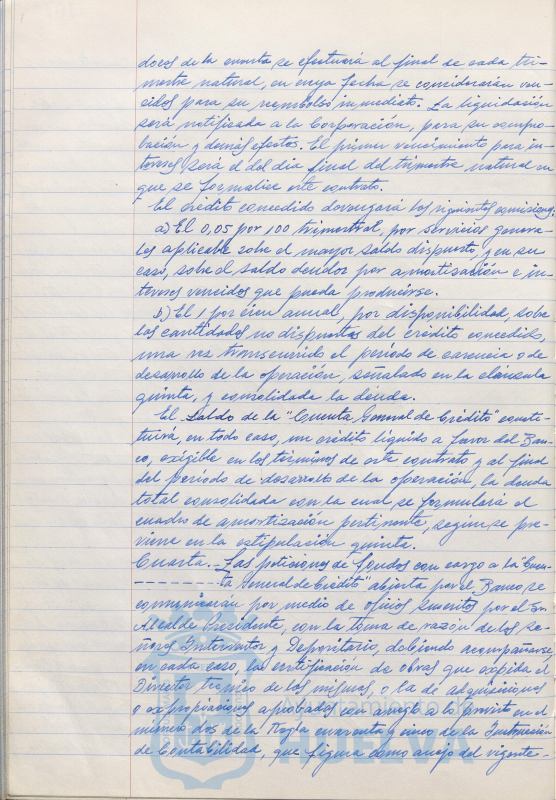 dores de la cuenta se efectuará al final de cada tri-
mestre natural, en cuya fecha se considerarán ven-
cidos para su reembolso inmediato. La liquidación
será notificada a la Corporación, para su compro-
bación y demás efectos. El primer vencimiento para in-
tereses será el del día final del trimestre natural en
que se formalice este contrato.
El crédito concedido devengará las siguientes comisiones:
a) El 0,05 por 100 trimestral, por servicios genera-
les aplicable sobre el mayor saldo dispuesto, y en su
caso, sobre el saldo deudor por amortización e in-
tereses vencidos que pueda producirse.
b) El 1 por cien anual, por disponibilidad, sobre
las cantidades no dispuestas del crédito concedido,
una vez transcurrido el período de carencia o de
desarrollo de la operación, señalado en la cláusula
quinta, y consolidada la deuda.
El saldo de la "Cuenta General de Crédito" consti-
tuirá, en todo caso, un crédito líquido a favor del Ban-
co, exigible en los términos de este contrato y al final
del período de desarrollo de la operación, la deuda
total consolidada con la cual se formulará el
cuadro de amortización pertinente, según se pre-
viene en la estipulación quinta.
Cuarta.- Las peticiones de fondos con cargo a la "Cuen-
----------ta General de Crédito" abierta por el Banco se
comunicarán por medio de oficios suscritos por el Sr.
Alcalde Presidente, con la toma de razón de los se-
ñores Interventor y Depositario, debiendo acompañarse,
en cada caso, las certificación de obras que expida el
Director técnico de las mismas, o la de adquisiciones
o expropiaciones aprobadas con arreglo a lo previsto en el
número dos de la Regla cuarenta y cinco de la Instrucción
de Contabilidad, que figura como anejo del vigente-
Ayuntamiento de
HUELVA